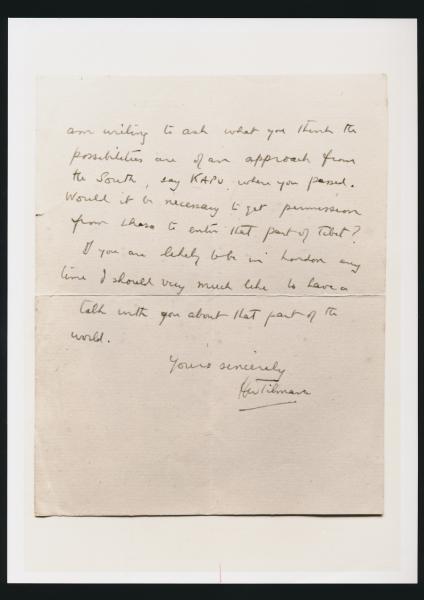 am writing to ask what you think the
possibilities are of an approach from
the South, say KAPU, where you passed.
Would it be necessary to get permission
from Lhasa to enter that part of Tibet?
If you are likely to be in London any
time I should very much like to have a
talk with you about that part of the
world.
Yours sincerely
HWTilman